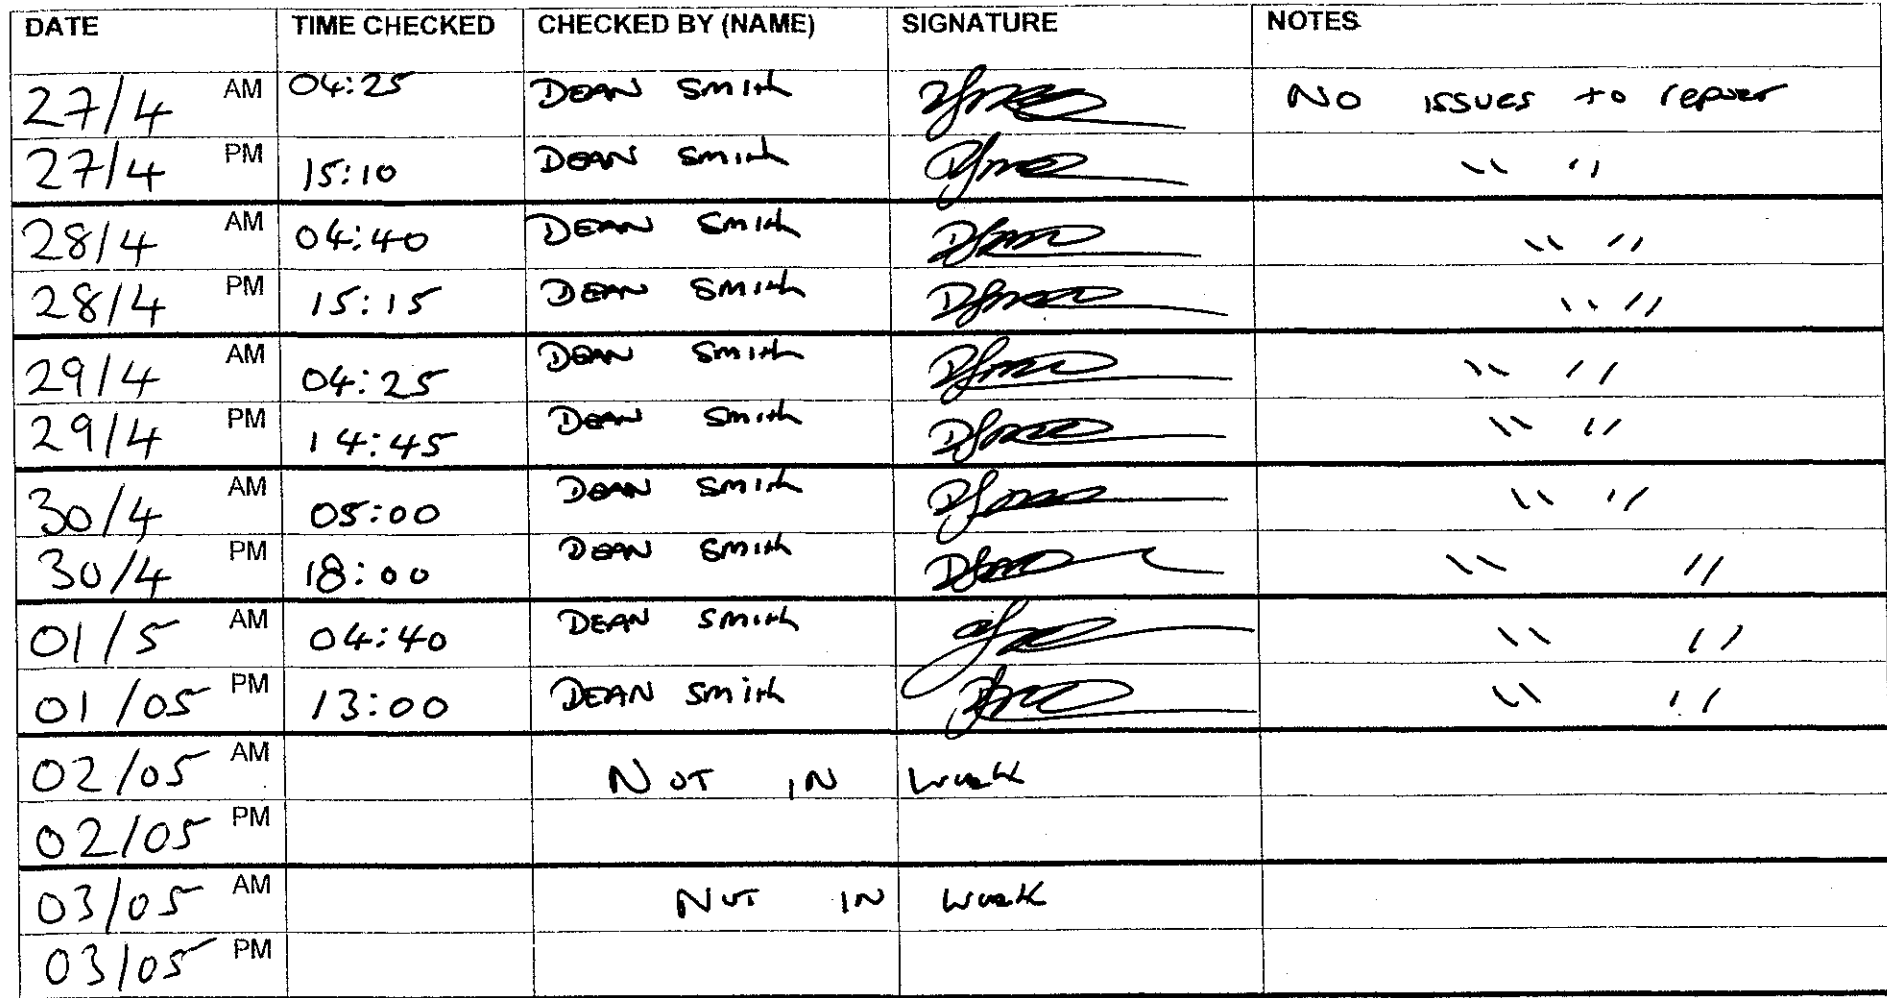 DATE TIME CHECKED CHECKED BY (NAME) SIGNATURE NOTES
27/4 AM 04:25 DEAN Smith No issues to report
27/4 PM 15:10 DEAN Smith " "
28/4 AM 04:40 DEAN Smith " "
28/4 PM 15:15 DEAN Smith " "
29/4 AM 04:25 DEAN Smith " "
29/4 PM 14:45 DEAN Smith " "
30/4 AM 05:00 DEAN Smith " "
30/4 PM 18:00 DEAN Smith " "
01/5 AM 04:40 DEAN Smith " "
01/05 PM 13:00 DEAN Smith " "
02/05 AM NOT IN WORK
02/05 PM
03/05 AM NOT IN WORK
03/05 PM